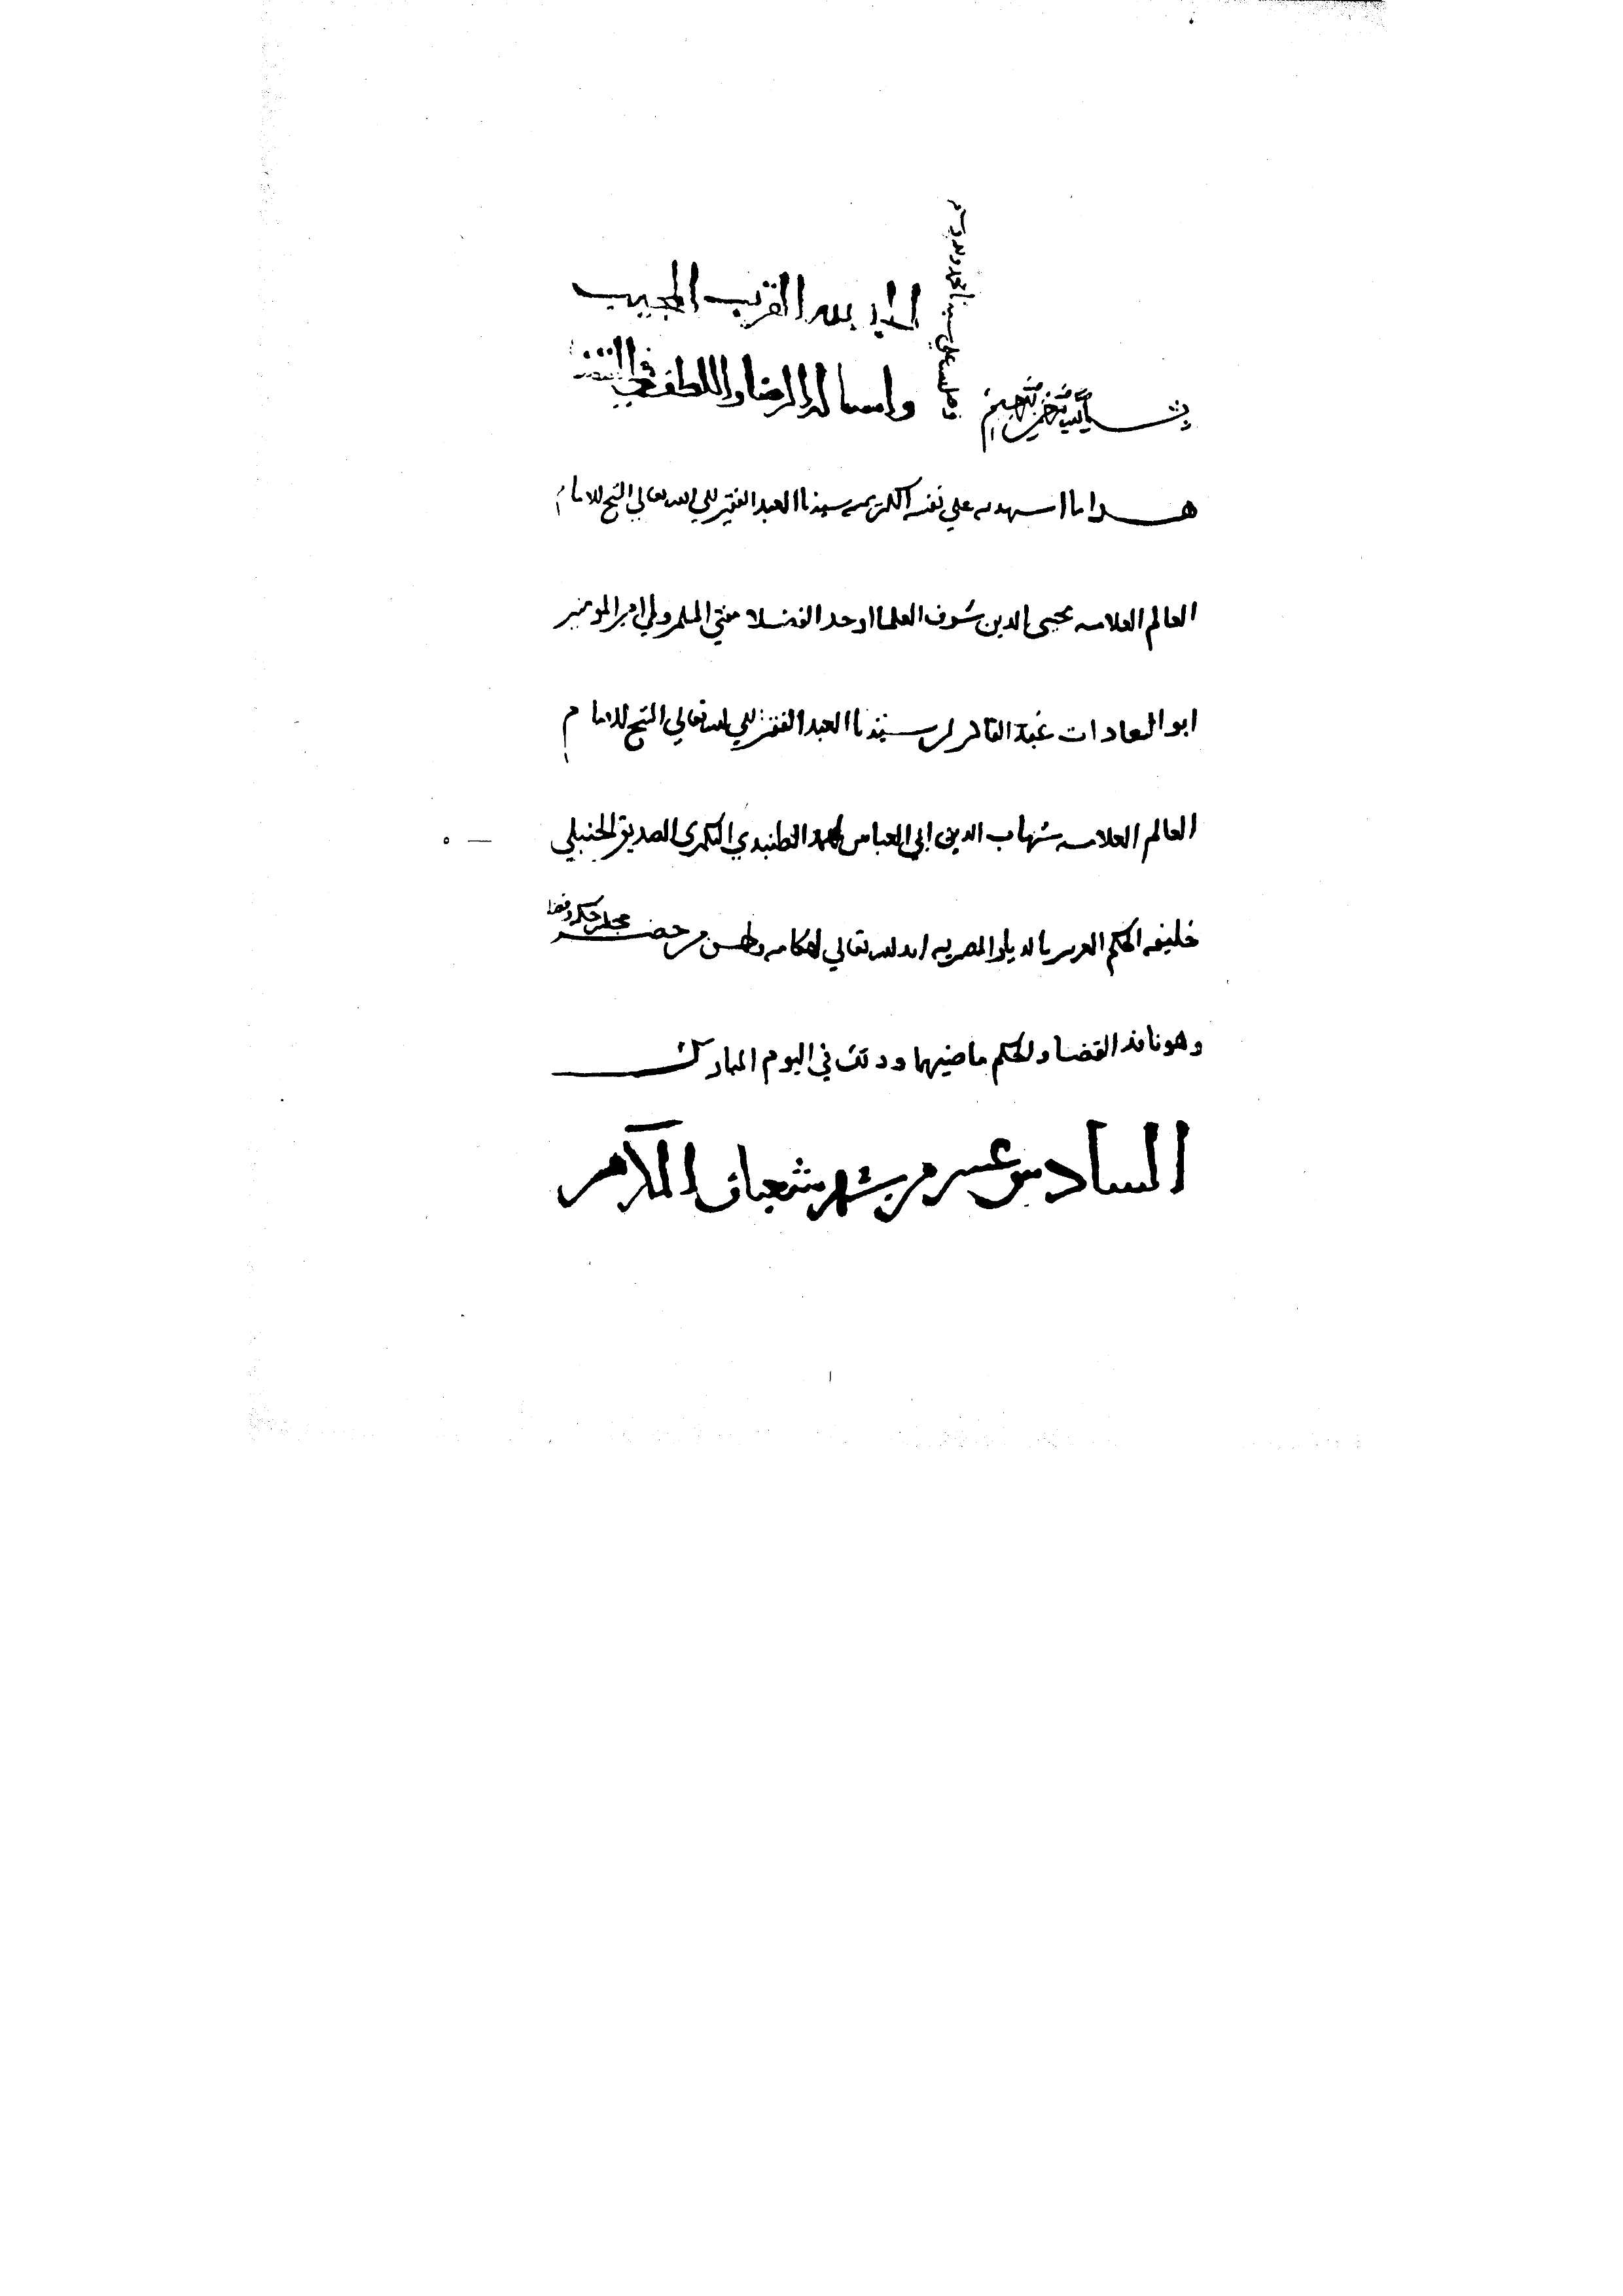 الحمد لله القريب المجيب
واساله الرضا واللطف في
بسم الله الرحمن الرحيم
وصلى الله على سيدنا محمد واله وسلم
هذا ما اسهد به علي نفسه الكريمه سيدنا العبد الفقير الي الله تعالي الشيخ الامام
العالم العلامه محيي الدين شرف العلما اوحد الفضلا مفتي المسلمين ولي امير المومنين
ابو السعادات عبد القادر ابن سيدنا العبد الفقير الي الله تعالي الشيخ الامام
العالم العلامه شهاب الدين ابي العباس احمد الطنبدي البكري الصديقي الحنبلي
خليفه الحكم العزيز بالديار المصريه ايد الله تعالي احكامه واحسن من حضر مجلس حكمه وقضا
وهو نافذ القضا والحكم ماضيهما وذلك في اليوم المبارك
السادس عشر من شهر شعبان المكرم